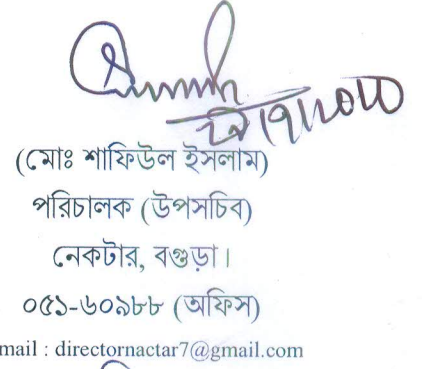 (মোঃ শাফিউল ইসলাম)
পরিচালক (উপসচিব)
নেকটার, বগুড়া।
০৫১-৬০৯৮৮ (অফিস)
mail : directornactar7@gmail.com